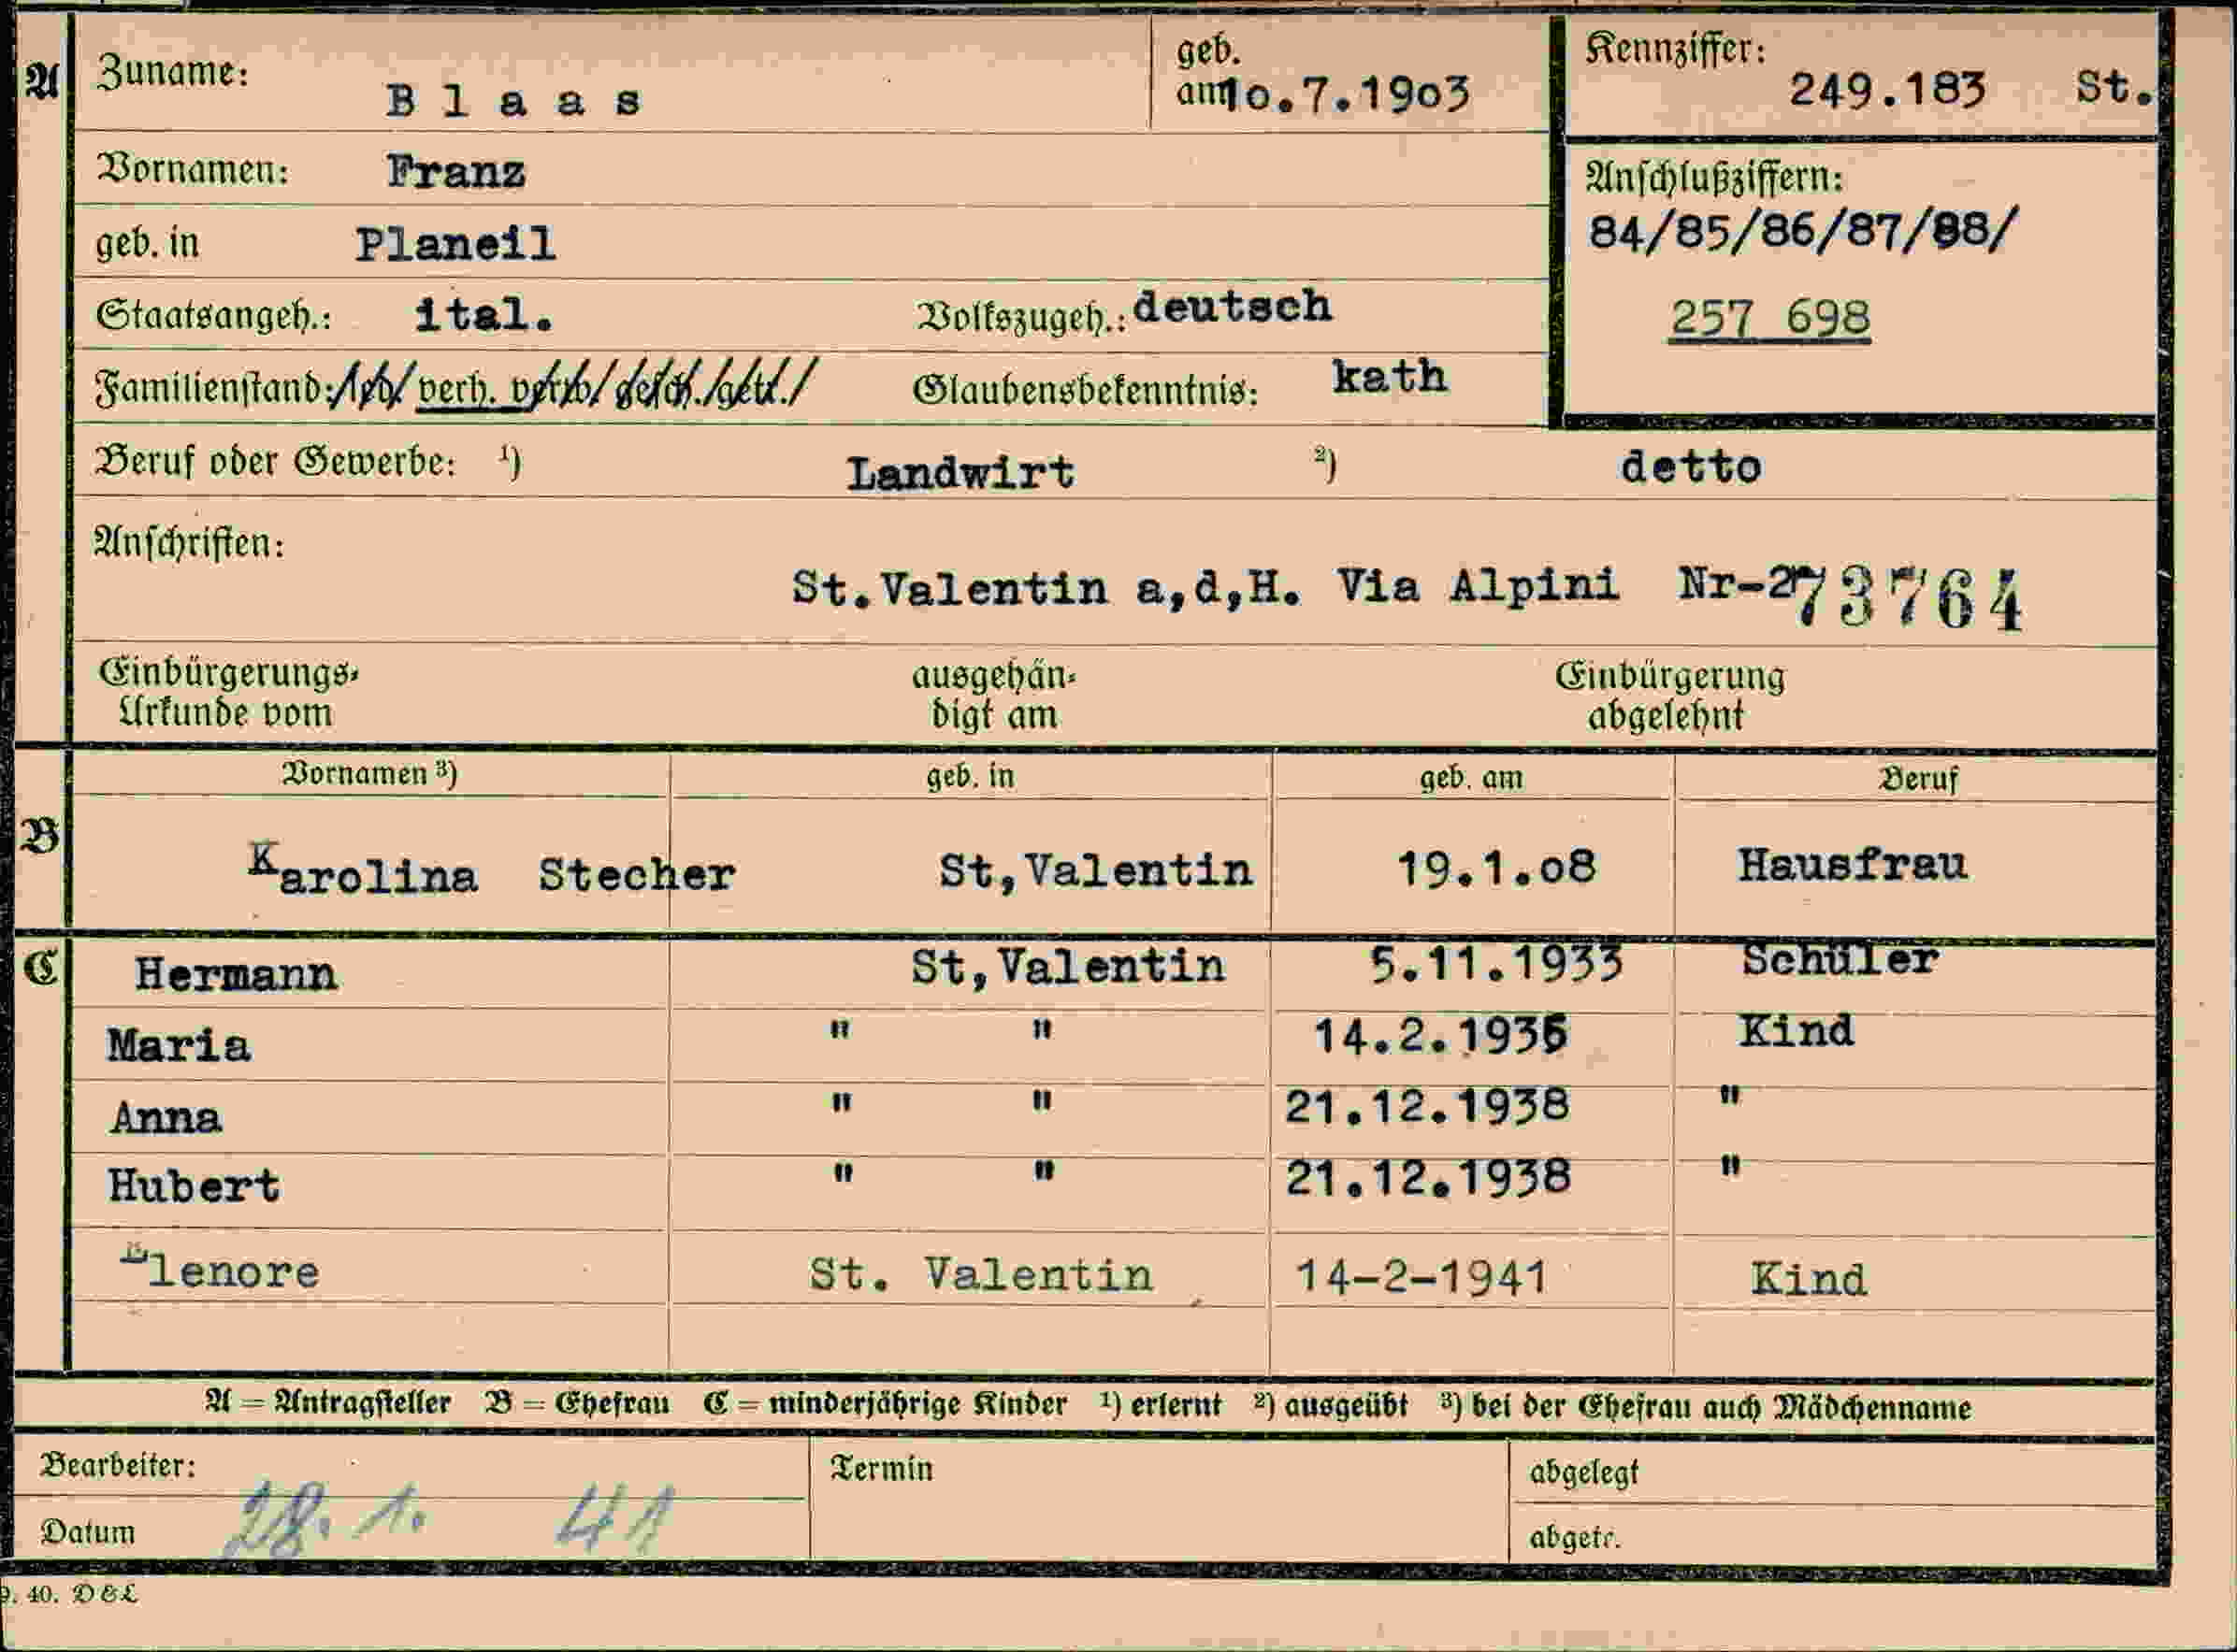 A Zuname: Blaas geb. am 10.7.1903 Kennziffer: 249.183 St.
Vornamen: Franz Anschlußziffern:
geb. in Planeil 84/85/86/87/88/
Staatsangeh.: ital. Volkszugeh.: deutsch 257 698
Familienstand: led/ verh. verw/ gesch./getr./ Glaubensbekenntnis: kath
Beruf oder Gewerbe: ¹) Landwirt ²) detto
Anschriften:
St.Valentin a,d,H. Via Alpini Nr-27 73764
Einbürgerungs- ausgehän- Einbürgerung
Urkunde vom digt am abgelehnt
Vornamen ³) geb. in geb. am Beruf
B Karolina Stecher St,Valentin 19.1.08 Hausfrau
C Hermann St,Valentin 5.11.1933 Schüler
Maria " " 14.2.1936 Kind
Anna " " 21.12.1938 "
Hubert " " 21.12.1938 "
Elenore St. Valentin 14-2-1941 Kind
A = Antragsteller B = Ehefrau C = minderjährige Kinder ¹) erlernt ²) ausgeübt ³) bei der Ehefrau auch Mädchenname
Bearbeiter: Termin abgelegt
Datum 28. 1. 41 abgetr.
9. 40. D&L